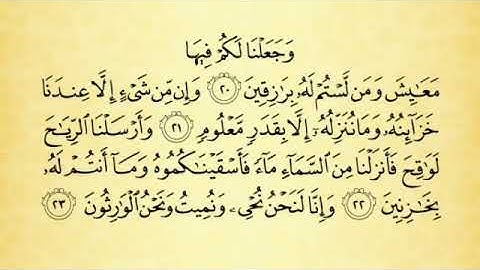 وَجَعَلْنَا لَكُمْ فِيهَا
مَعَايِشَ وَمَن لَّسْتُمْ لَهُۥ بِرَازِقِينَ ٢٠ وَإِن مِّن شَىْءٍ إِلَّا عِندَنَا
خَزَآئِنُهُۥ وَمَا نُنَزِّلُهُۥٓ إِلَّا بِقَدَرٍ مَّعْلُومٍ ٢١ وَأَرْسَلْنَا الرِّيَاحَ
لَوَاقِحَ فَأَنزَلْنَا مِنَ السَّمَآءِ مَآءً فَأَسْقَيْنَاكُمُوهُ وَمَآ أَنتُمْ لَهُۥ
بِخَازِنِينَ ٢٢ وَإِنَّا لَنَحْنُ نُحْىِۦ وَنُمِيتُ وَنَحْنُ الْوَارِثُونَ ٢٣